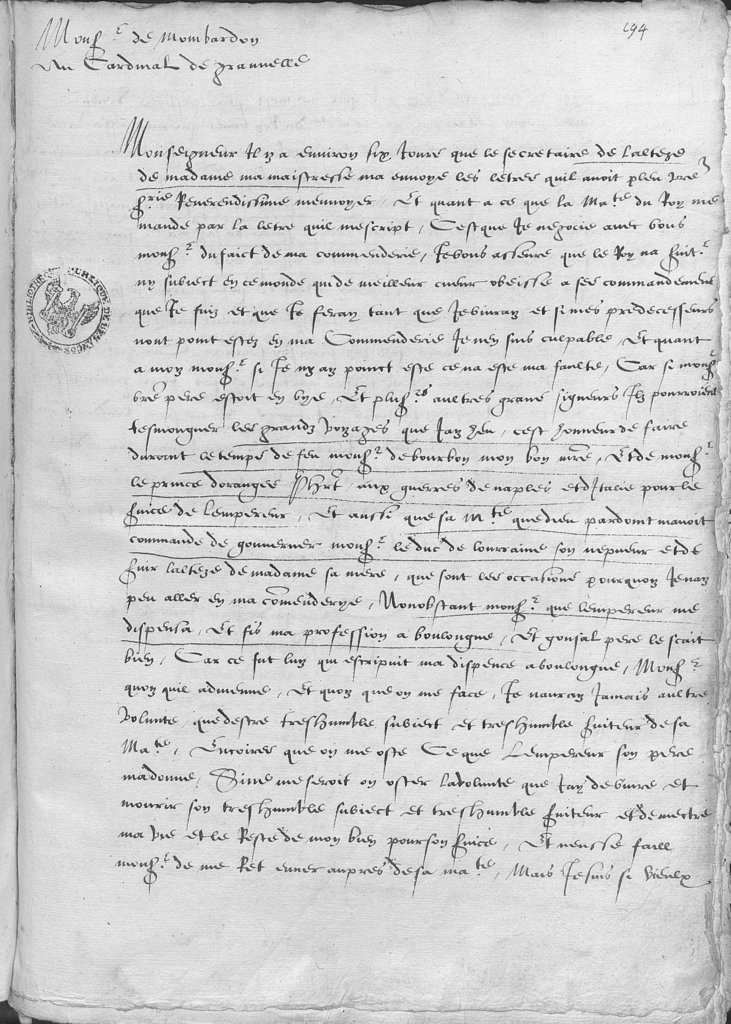 194
Mons.r de Mombardon
Au Cardinal de granvelle
Monseigneur Il y a environ six Jours que le secretaire de lalteze
de madame ma maistresse ma envoye les letres quil avoit pleu v're
s.rie Reverendissime menvoyer, Et quant a ce que la Ma.te du Roy me
mande par la letre quil mescript, Cest que Je negocie avec vous
mons.r du faict de ma commenderie, Je vous asseure que le Roy na suit.r
ny subiect en ce monde qui de meilleur cueur obeisse a ses commandemens
que Je fais et que Je feray tant que Je vivray et si mes predecesseurs
nont point estez en ma Commenderie Je nen suis culpable, Et quant
a moy mons.r si Je ny ay poinct este ce na este ma faulte, Car si mons.r
v're pere estoit en vye, Et plus.rs aultres grans signeurs Ilz pourroient
tesmongner les grandz voyazes que Jay heu, cest honneur de faire
durant le temps de feu mons.r de bourbon mon bon m're, Et de mons.r
le prince doranges aux guerres de naples et dItalie pour le
s'uice de lempereur, Et aussi que sa M.te que dieu pardoint mavoit
commande de gouverner mons.r le duc de lourraine son nepueur et de
s'uir lalteze de madame sa mere, que sont les occasions pourquoy Je nay
peu aller en ma co'menderye, Nonobstant mons.r que lempereur me
dispensa, Et fis ma profession a boulongne, Et gonsal pere le scait
bien, Car ce fut luy qui escripuit ma dispence a boulongne, Mons.r
quoy quil advienne, Et quoy que on me face, Je nauray Jamais aultre
volunte, que destre treshumble subiect et treshumble s'uiteur de sa
Ma.te, Encoires que on me oste Ce que Lempereur son pere
ma donne, Sine me seroit on oster la volunte que Jay de vivre et
mourir son treshumble subiect et treshumble s'uiteur et de mectre
ma vie et le Reste de mon bien pour son s'uice, Et neusse faill
mons.r de me Ret enver aupres de sa ma.te, Mais Je suis si vieulx